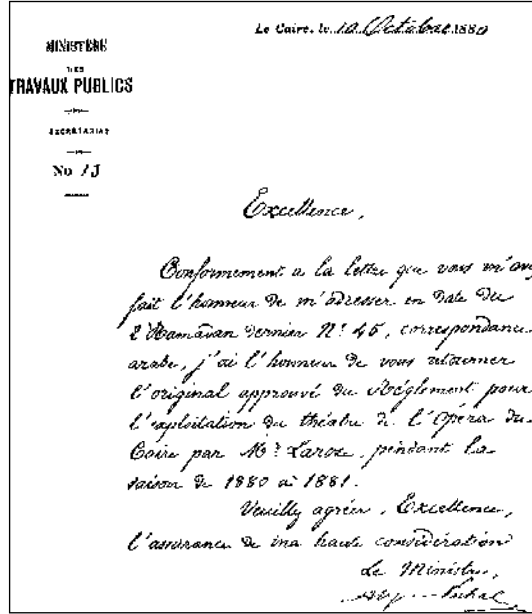 Le Caire, le 10 Octobre 1880
MINISTÈRE
DES
TRAVAUX PUBLICS
SECRÉTARIAT
No 13
Excellence,
Conformement a la lettre que vous m'avez
fait l'honneur de m'adresser en date du
2 Ramadan dernier N° 45, correspondance
arabe, j'ai l'honneur de vous retourner
l'original approuvé du Réglement pour
l'exploitation du théatre de l'Opéra du
Caire par Mr. Laroze, pendant la
saison de 1880 à 1881.
Veuillez agréer, Excellence,
l'assurance de ma haute considération
Le Ministre,